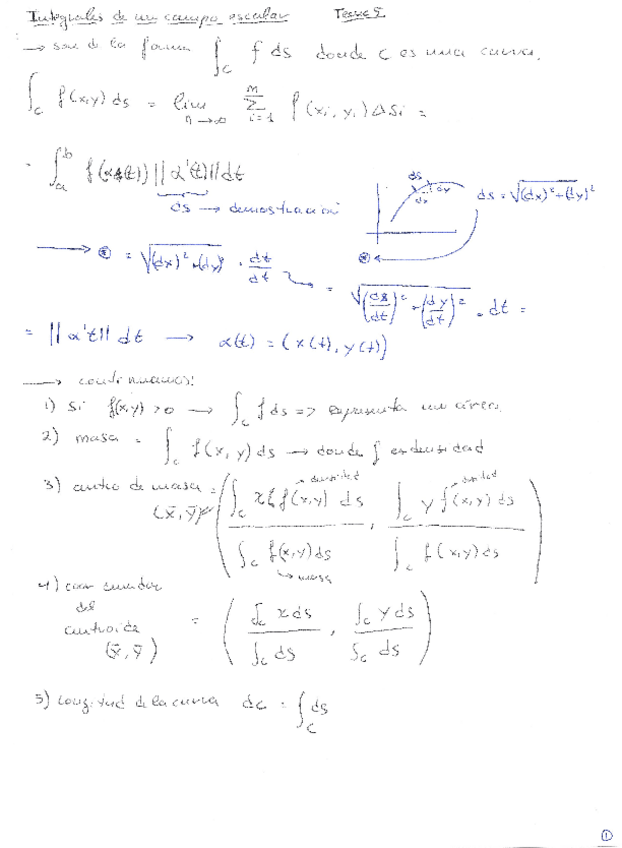 Integrales de un campo escalar Tema 5
→ son de la forma ∫_C f ds donde C es una curva.
∫_C f(x,y) ds = lim_{n→∞} Σ_{i=1}^{m} f(xi, yi) ΔSi =
= ∫_a^b f(α(t)) ||α'(t)|| dt
ds → demostración
ds dy dx ds = √(dx)²+(dy)²
→ ⊛ = √(dx)²+(dy)² · dt/dt = √(dx/dt)²+(dy/dt)² · dt =
= ||α't|| dt → α(t) = (x(t), y(t))
→ continuamos:
1) Si f(x,y) > 0 → ∫_C f ds => representa un área.
2) masa = ∫_C f(x, y) ds → donde f es densidad
3) centro de masa (x̄, ȳ) = ( ∫_C x f(x,y) ds / ∫_C f(x,y) ds , ∫_C y f(x,y) ds / ∫_C f(x,y) ds )
densidad densidad
masa
4) coordenadas
del
centroide
(x̄, ȳ) = ( ∫_C x ds / ∫_C ds , ∫_C y ds / ∫_C ds )
5) longitud de la curva de C = ∫_C ds
1